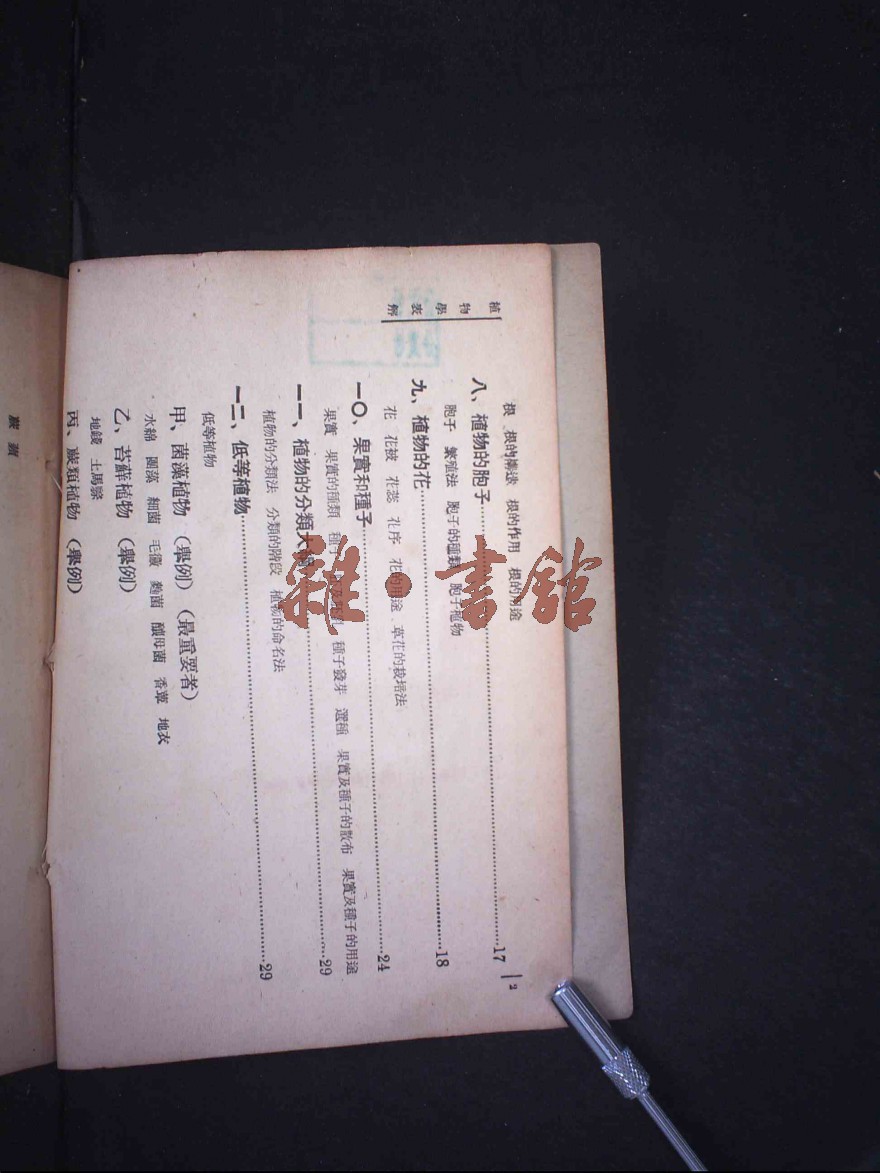 植物學表解
根 根的構造 根的作用 根的用途
八、植物的胞子……17
胞子 繁殖法 胞子的種類 胞子植物
九、植物的花……18
花 花被 花蕊 花序 花的用途 草花的栽培法
一〇、果實和種子……24
果實 果實的種類 種子 種子發芽 選種 果實及種子的散布 果實及種子的用途
一一、植物的分類大……29
植物的分類法 分類的階段 植物的命名法
一二、低等植物……29
低等植物
甲、菌藻植物(舉例)(最重要者)
水綿 團藻 細菌 毛黴 麴菌 釀母菌 香蕈 地衣
乙、苔蘚植物(舉例)
地錢 土馬騌
丙、蕨類植物(舉例)
2
書館